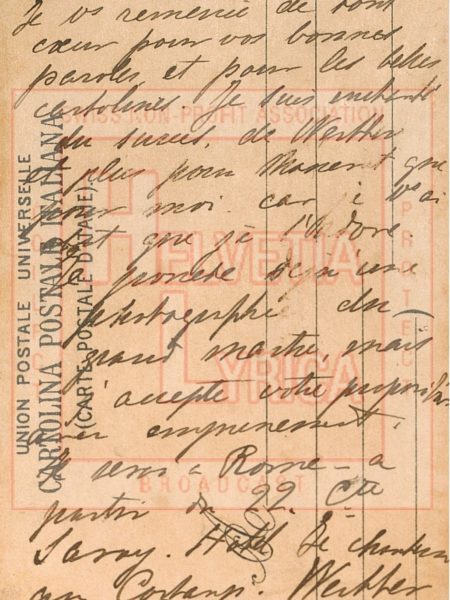 Je vs remercie de tout
cœur pour vos bonnes
paroles, et pour les belles
cartolines. Je suis enchanté
du succès, de Werther
et plus pour Massenet que
pour moi. car je
que je l'adore
Je possède déjà une
photographie du
grand maître, mais
j'accepte votre proposition
avec empressement.
Je serai à Rome - à
partir du 22. Cte
Savoy. Hôtel Je chanterai
au Costanzi. Werther
UNION POSTALE UNIVERSELLE
CARTOLINA POSTALE ITALIANA
(CARTE POSTALE D'ITALIE)
SWISS NON-PROFIT ASSOCIATION
HELVETIA
LYRICA
BROADCAST